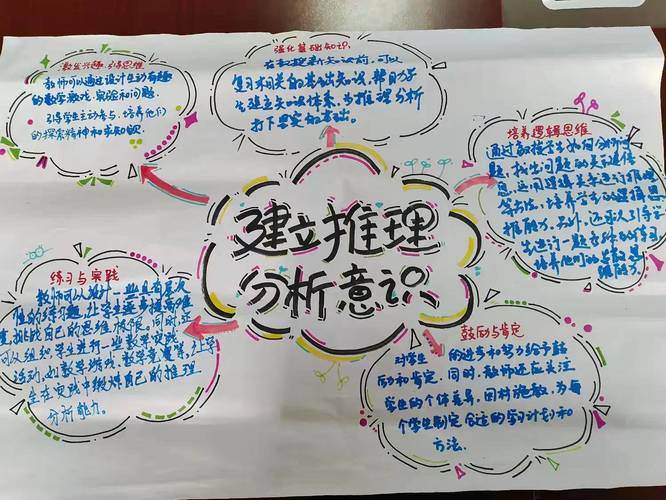 建立推理
分析意识
激发兴趣,引导思维
教师可以通过设计生动有趣
的数学游戏,实验和问题,
引导学生主动参与,培养他们
的探索精神和求知欲
强化基础知识
在教授新知识前,可以
复习相关的基础知识,帮助学
生建立知识体系,为推理分析
打下坚实的基础。
培养逻辑思维
通过教授学生如何分析问
题,找出问题的关键信
息,运用逻辑关系进行推理
等方法,培养学生的逻辑思
维能力。另外,还可以引导学
生进行一题多解的练习
培养他们的发散思
维能力
练习与实践
教师可以设计一些具有层次
性的练习题,让学生逐步提高难
度,挑战自己的思维极限。同时,还
可以组织学生进行一些数学实践
活动,如数学游戏、数学竞赛等,让学
生在实践中锻炼自己的推理
分析能力。
鼓励与肯定
对学生的进步和努力给予鼓
励和肯定,同时,教师还应关注
学生的个体差异,因材施教,为每
个学生制定合适的学习计划和
方法。